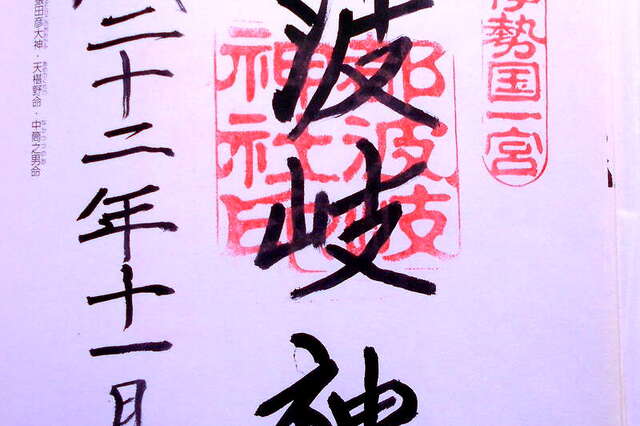 伊勢国一宮
波岐神
都波岐
神社印
二十二年十一月
猿田彦大神・天椹野命・中筒之男命